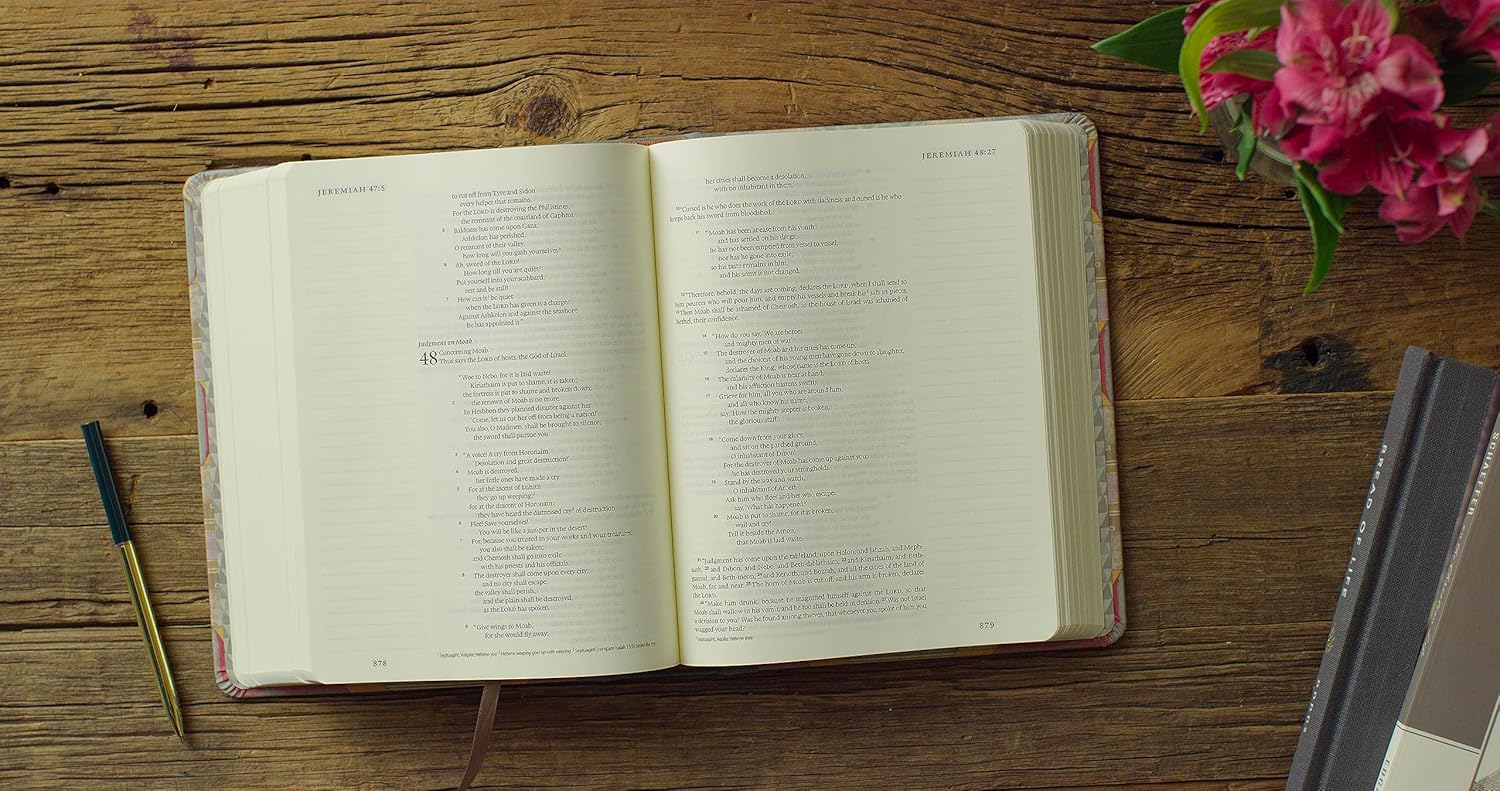 JEREMIAH 47:5
to cut off from Tyre and Sidon
every helper that remains.
For the LORD is destroying the Philistines,
the remnant of the coastland of Caphtor.
5 Baldness has come upon Gaza;
Ashkelon has perished.
O remnant of their valley,
how long will you gash yourselves?
6 Ah, sword of the LORD!
How long till you are quiet?
Put yourself into your scabbard;
rest and be still!
7 How can it¹ be quiet
when the LORD has given it a charge?
Against Ashkelon and against the seashore
he has appointed it."
Judgment on Moab
48 Concerning Moab.
Thus says the LORD of hosts, the God of Israel:
"Woe to Nebo, for it is laid waste!
Kiriathaim is put to shame, it is taken;
the fortress is put to shame and broken down;
2 the renown of Moab is no more.
In Heshbon they planned disaster against her:
'Come, let us cut her off from being a nation!'
You also, O Madmen, shall be brought to silence;
the sword shall pursue you.
3 "A voice! A cry from Horonaim,
'Desolation and great destruction!'
4 Moab is destroyed;
her little ones have made a cry.
5 For at the ascent of Luhith
they go up weeping;²
for at the descent of Horonaim
they have heard the distressed cry³ of destruction.
6 Flee! Save yourselves!
You will be like a juniper in the desert!
7 For, because you trusted in your works and your treasures,
you also shall be taken;
and Chemosh shall go into exile
with his priests and his officials.
8 The destroyer shall come upon every city,
and no city shall escape;
the valley shall perish,
and the plain shall be destroyed,
as the LORD has spoken.
9 "Give wings to Moab,
for she would fly away;
¹ Septuagint, Vulgate; Hebrew you ² Hebrew weeping goes up with weeping ³ Septuagint (compare Isaiah 15:5) heard the cry
878
JEREMIAH 48:27
her cities shall become a desolation,
with no inhabitant in them.
10 "Cursed is he who does the work of the LORD with slackness, and cursed is he who
keeps back his sword from bloodshed.
11 "Moab has been at ease from his youth
and has settled on his dregs;
he has not been emptied from vessel to vessel,
nor has he gone into exile;
so his taste remains in him,
and his scent is not changed.
12 "Therefore, behold, the days are coming, declares the LORD, when I shall send to
him pourers who will pour him, and empty his vessels and break his¹ jars in pieces.
13 Then Moab shall be ashamed of Chemosh, as the house of Israel was ashamed of
Bethel, their confidence.
14 "How do you say, 'We are heroes
and mighty men of war'?
15 The destroyer of Moab and his cities has come up,
and the choicest of his young men have gone down to slaughter,
declares the King, whose name is the LORD of hosts.
16 The calamity of Moab is near at hand,
and his affliction hastens swiftly.
17 Grieve for him, all you who are around him,
and all who know his name;
say, 'How the mighty scepter is broken,
the glorious staff.'
18 "Come down from your glory,
and sit on the parched ground,
O inhabitant of Dibon!
For the destroyer of Moab has come up against you;
he has destroyed your strongholds.
19 Stand by the way and watch,
O inhabitant of Aroer!
Ask him who flees and her who escapes;
say, 'What has happened?'
20 Moab is put to shame, for it is broken;
wail and cry!
Tell it beside the Arnon,
that Moab is laid waste.
21 "Judgment has come upon the tableland, upon Holon, and Jahzah, and Meph-
aath, 22 and Dibon, and Nebo, and Beth-diblathaim, 23 and Kiriathaim, and Beth-
gamul, and Beth-meon, 24 and Kerioth, and Bozrah, and all the cities of the land of
Moab, far and near. 25 The horn of Moab is cut off, and his arm is broken, declares
the LORD.
26 "Make him drunk, because he magnified himself against the LORD, so that
Moab shall wallow in his vomit, and he too shall be held in derision. 27 Was not Israel
a derision to you? Was he found among thieves, that whenever you spoke of him you
wagged your head?
¹ Septuagint, Aquila; Hebrew their
879
BREAD OF LIFE
SCHAEFFER